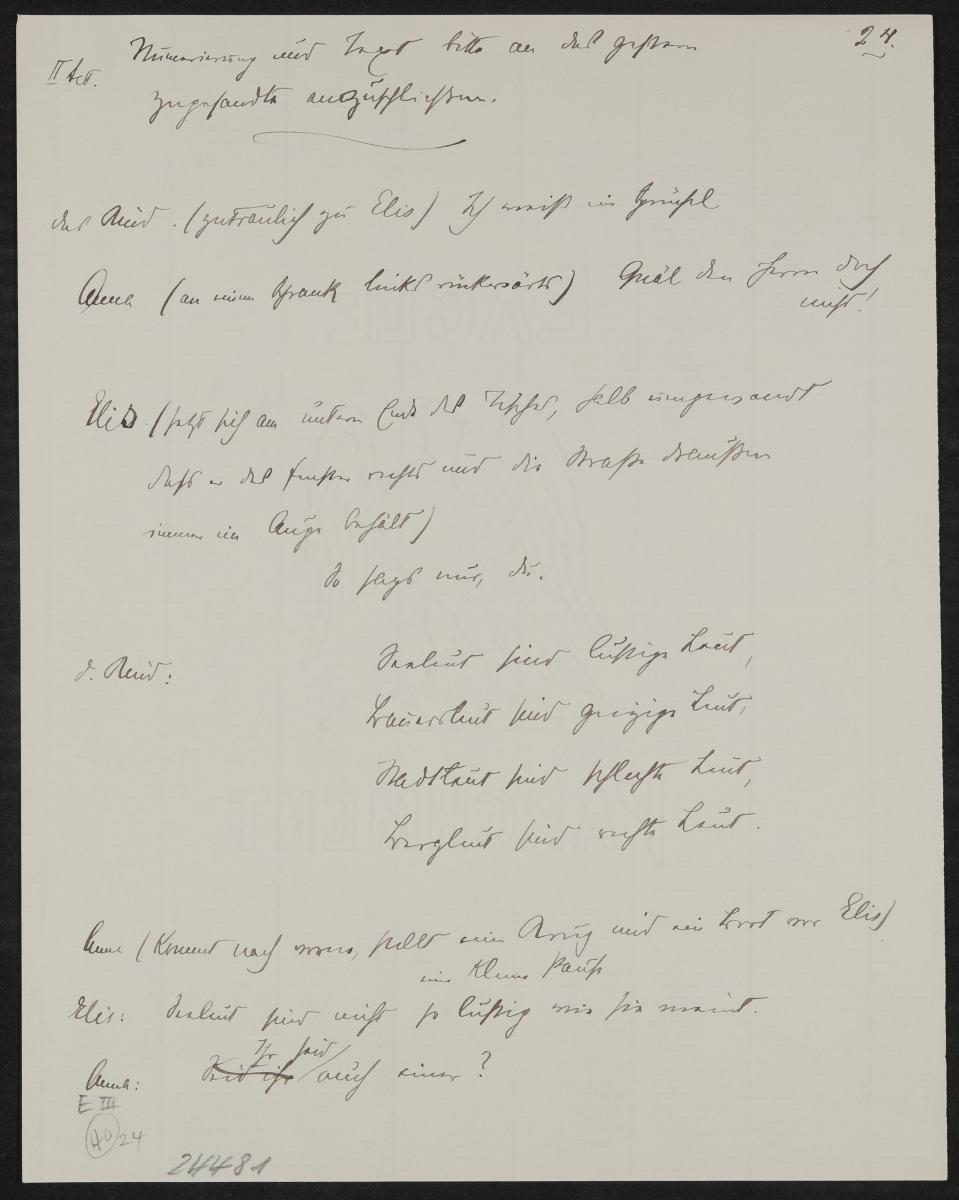 24.
II Act.
Numerierung und Text bitte an das gestern
zugesandte anzuschließen.
das Kind. (zutraulich zu Elis) Ich weiß ein Sprüchl
Anna (an einem Schrank links rückwärts) Quäl den Herrn doch
nicht!
Elis. (setzt sich ans untere Ende des Tisches, halb umgewandt
dass er das Fenster rechts und die Straße draußen
immer im Auge behält)
So sags nur, du.
d. Kind:
Seeleut sind lustige Leut,
Bauersleut sind geizige Leut,
Stadtleut sind schlechte Leut,
Bergleut sind rechte Leut.
Anna (kommt nach vorne, stellt einen Krug und ein Brot vor Elis)
eine kleine Pause
Elis: Seeleut sind nicht so lustig wie sie meint.
Ihr seid
Anna: Seid ihr auch einer?
E III
40 24
24481
LAGLE
PARCHMENT